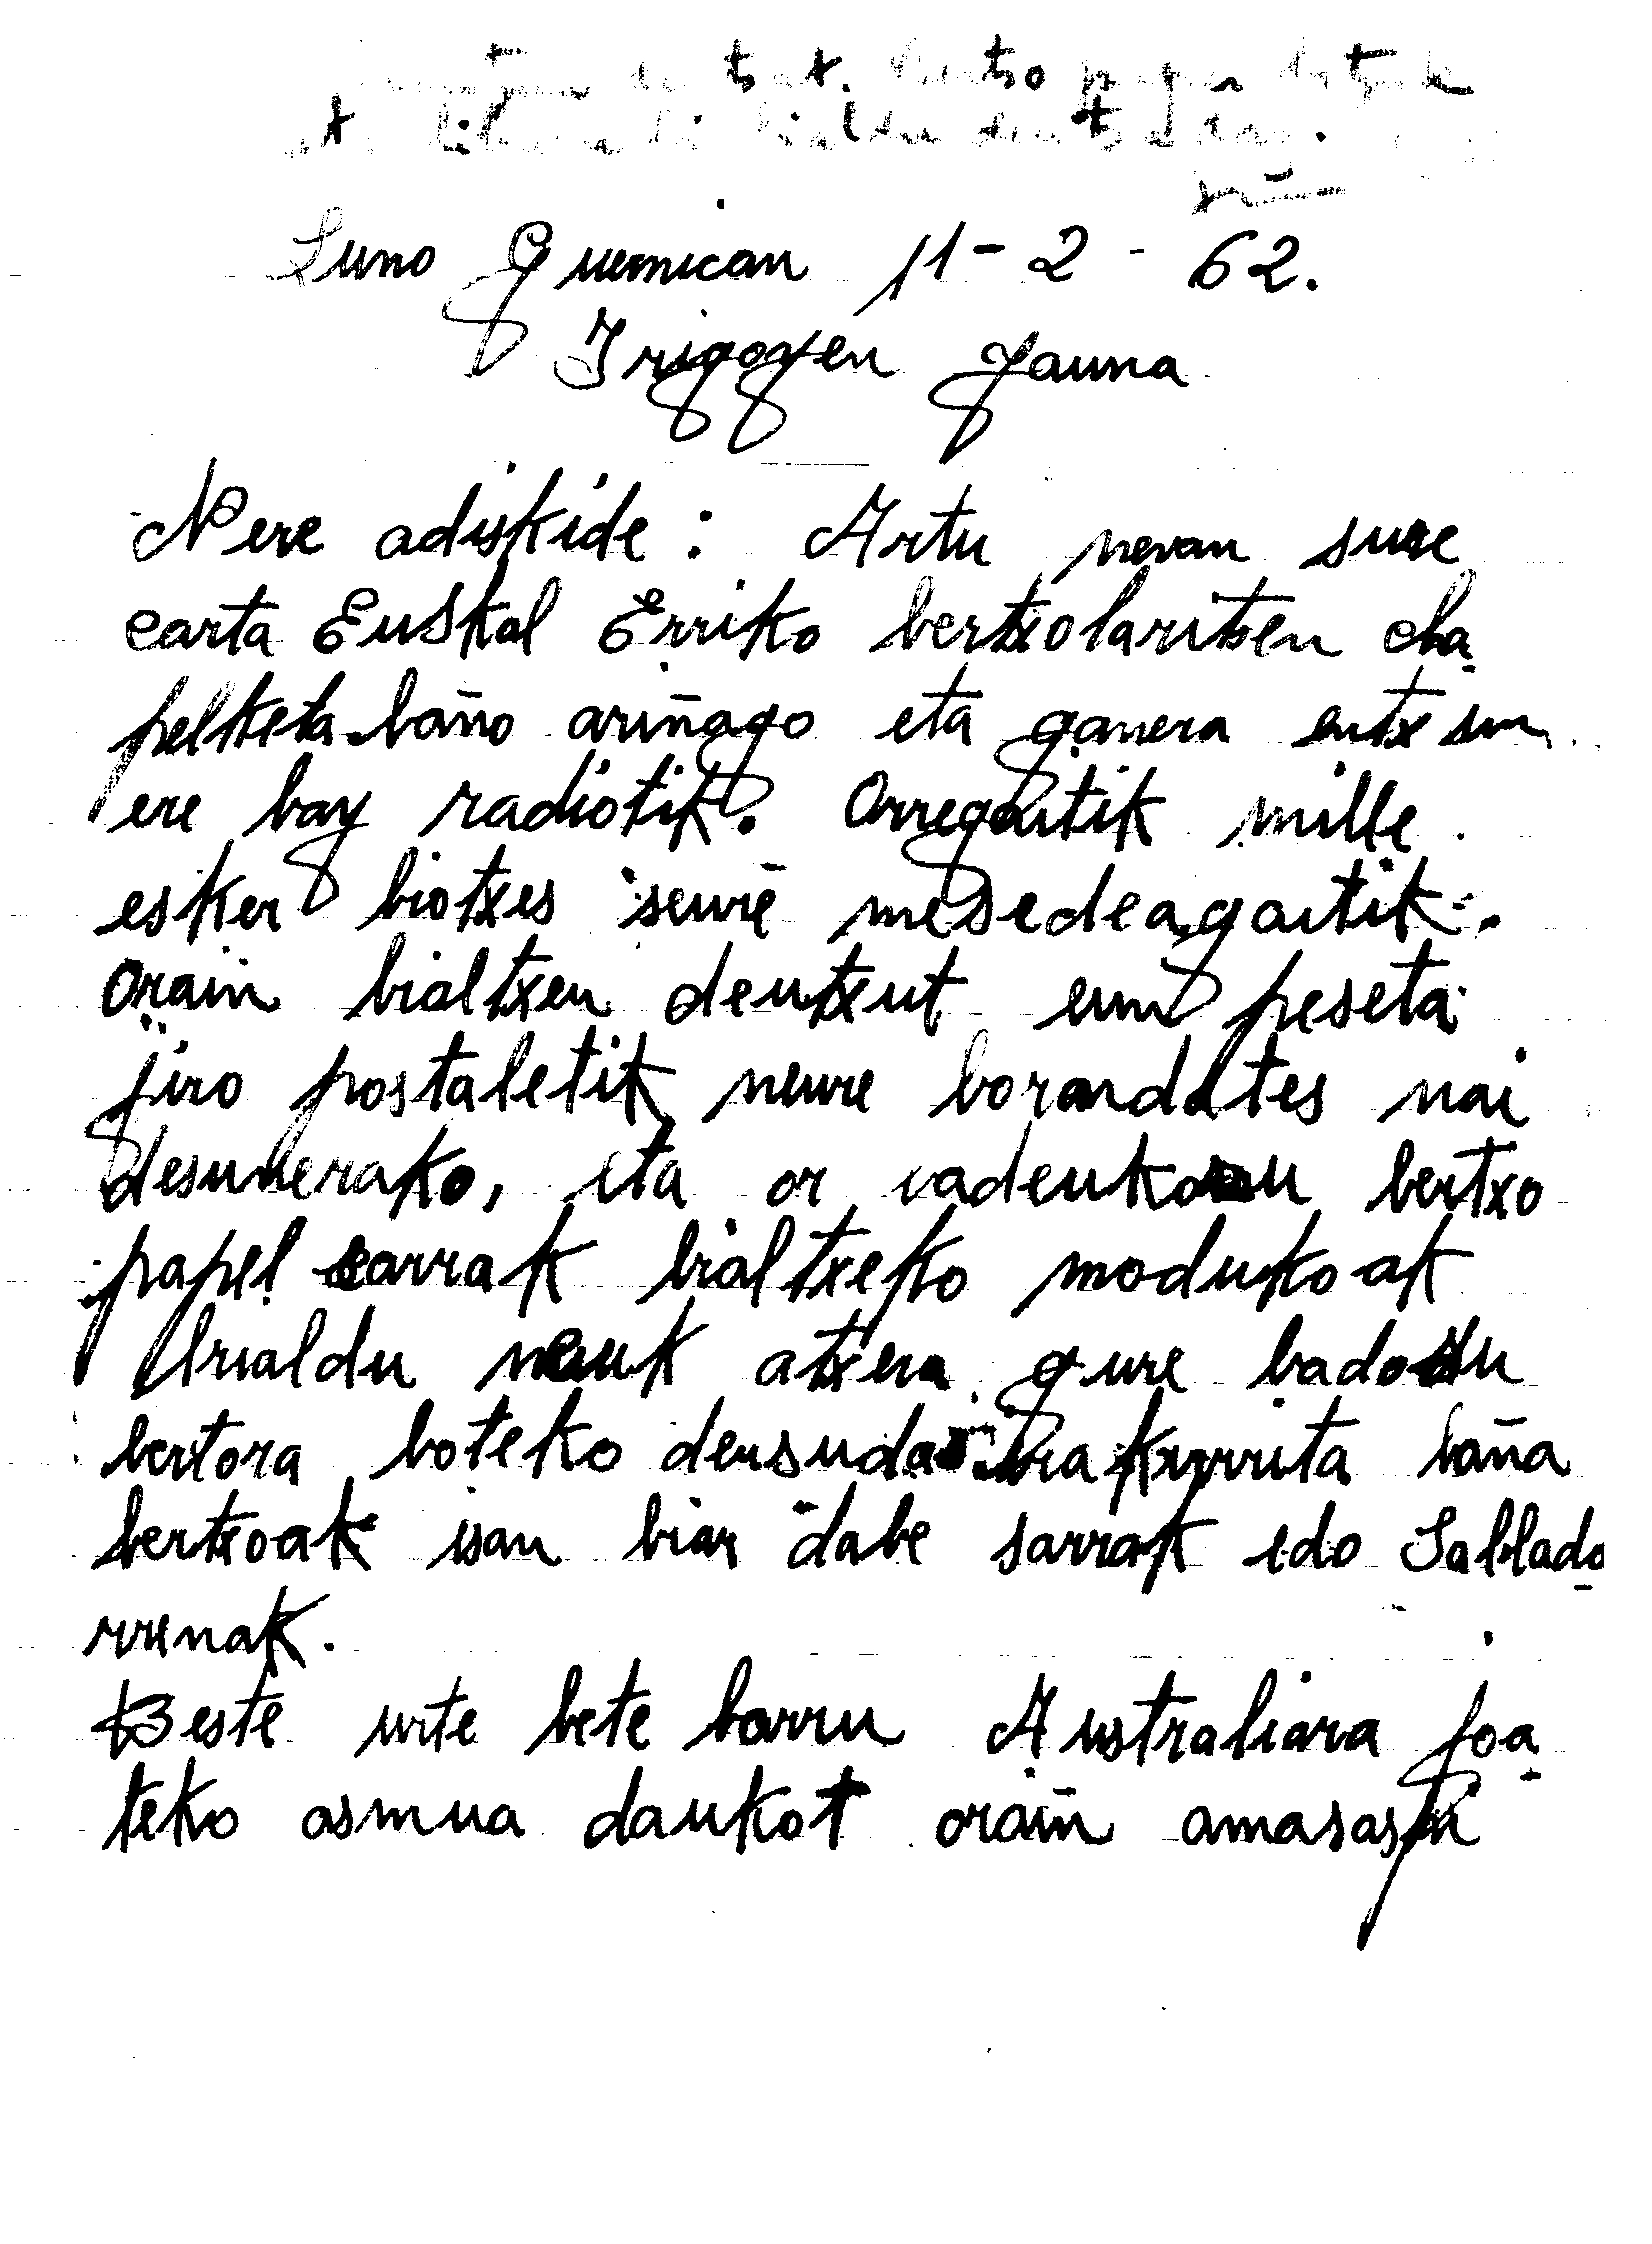 Luno Guernican 11-2-62.
Irigoyen Jauna
Nere adiskide: Artu nevan sure
carta Euskal Erriko bertxolaritsen cha
pelketa baño ariñago eta ganera entxun
ere bay radiotik. Orregaitik mille
esker biotxes seure mesedeagaitik.
Orain bialtxen deutxut eun peseta
jiro postaletik neure borondates nai
desunerako, eta or badeukozu bertxo
papel sarrak bialtxeko modukoak
bialdu neuk atxera gure badozu
bertora boteko deusudas irakurrita baña
bertxoak isan biar dabe sarrak edo Sablado
rrenak.
Beste urte bete barru Australiara joa
teko asmua daukot orain amasaspi